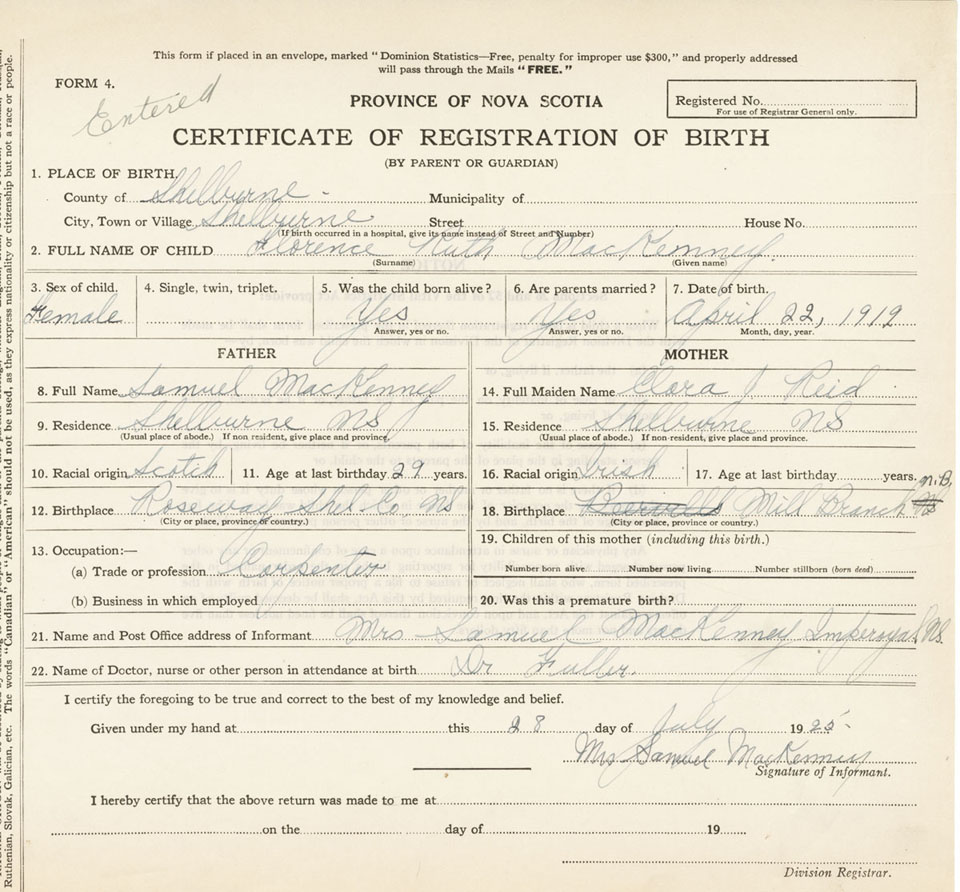 This form if placed in an envelope, marked "Dominion Statistics—Free, penalty for improper use $300," and properly addressed
will pass through the Mails "FREE."
FORM 4.
Entered
PROVINCE OF NOVA SCOTIA
Registered No.
For use of Registrar General only.
CERTIFICATE OF REGISTRATION OF BIRTH
(BY PARENT OR GUARDIAN)
1. PLACE OF BIRTH,
County of Shelburne - Municipality of
City, Town or Village Shelburne Street House No.
(If birth occurred in a hospital, give its name instead of Street and Number)
2. FULL NAME OF CHILD Florence Ruth MacKenney.
(Surname) (Given name)
3. Sex of child. 4. Single, twin, triplet. 5. Was the child born alive? 6. Are parents married? 7. Date of birth.
Female Yes Yes April 22, 1919
Answer, yes or no. Answer, yes or no. Month, day, year.
FATHER MOTHER
8. Full Name Samuel MacKenney 14. Full Maiden Name Clara J Reid
9. Residence Shelburne NS 15. Residence Shelburne NS
(Usual place of abode.) If non resident, give place and province. (Usual place of abode.) If non-resident, give place and province.
10. Racial origin Scotch 11. Age at last birthday 29 years. 16. Racial origin Irish 17. Age at last birthday years.
12. Birthplace Roseway Shel. Co. NS 18. Birthplace Mill Branch NS N.B.
(City or place, province or country.) (City or place, province or country.)
13. Occupation:— 19. Children of this mother (including this birth.)
(a) Trade or profession Carpenter Number born alive Number now living Number stillborn (born dead)
(b) Business in which employed 20. Was this a premature birth?
21. Name and Post Office address of Informant Mrs Samuel MacKenney Imperoyal NS.
22. Name of Doctor, nurse or other person in attendance at birth Dr Fuller.
I certify the foregoing to be true and correct to the best of my knowledge and belief.
Given under my hand at this 28 day of July 1925-
Mrs Samuel MacKenney
Signature of Informant.
I hereby certify that the above return was made to me at
on the day of 19
Division Registrar.
Ruthenian, Slovak, Galician, etc. The words "Canadian", or "American" should not be used, as they express nationality or citizenship but not a race or people.